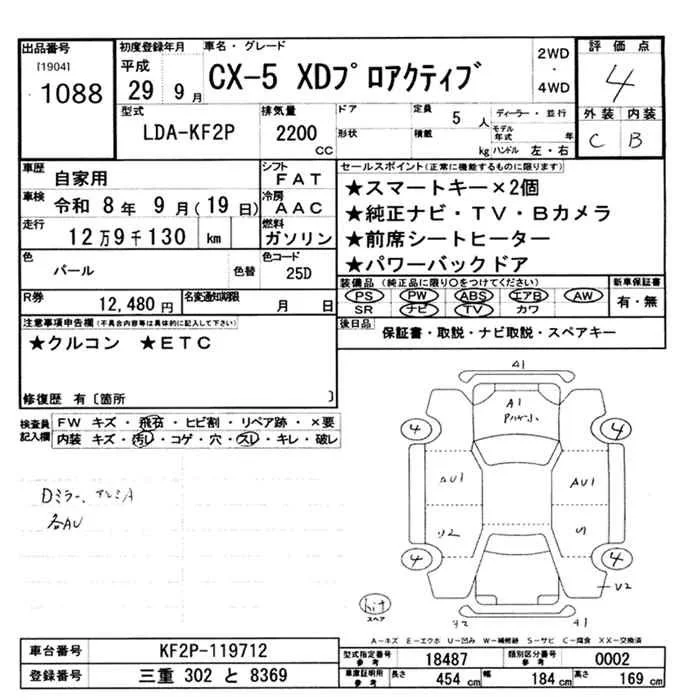 出品番号
[1904]
1088
初度登録年月
平成
29 9 月
車名・グレード
CX-5 XDプロアクティブ
2WD
・
4WD
評価点
4
外装 内装
C B
型式
LDA-KF2P
排気量
2200
CC
ドア
形状
定員
5 人
積載
kg
ディーラー・並行
モデル年式 年
ハンドル 左・右
車歴
自家用
シフト
FAT
車検
令和 8年 9月(19日)
冷房
AAC
走行
12万9千130 km
燃料
ガソリン
色
パール
色替
色コード
25D
R券
12,480円
名変通知期限
月 日
セールスポイント(正常に機能するものに限ります)
★スマートキー×2個
★純正ナビ・TV・Bカメラ
★前席シートヒーター
★パワーバックドア
装備品(純正品に限り○をつけてください)
PS PW ABS エアB AW
SR ナビ TV カワ
新車保証書
有・無
後日品
保証書・取説・ナビ取説・スペアキー
注意事項申告欄(不具合内容等は具体的に記入して下さい)
★クルコン ★ETC
修復歴 有〔箇所 〕
検査員記入欄
FW キズ・飛石・ヒビ割・リペア跡・×要
内装 キズ・汚レ・コゲ・穴・スレ・キレ・破レ
Dミラー、アルミA
各AU
A1
A1
4
4
AU1
AU1
U2
U1
4
4
U2
hit
スペア
U2
A1
A-キズ E-エクボ U-凹み W-補修跡 S-サビ C-腐食 XX-交換済
車台番号
KF2P-119712
登録番号
三重 302 と 8369
型式指定番号
参考
18487
類別区分番号
参考
0002
車庫証明用
参考
長さ 454 cm 幅 184 cm 高さ 169 cm